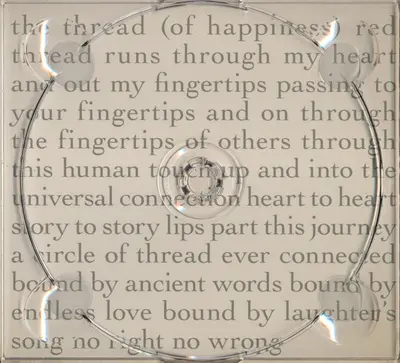 the thread (of happiness) red
thread runs through my heart
and out my fingertips passing to
your fingertips and on through
the fingertips of others through
this human touch up and into the
universal connection heart to heart
story to story lips part this journey
a circle of thread ever connected
bound by ancient words bound by
endless love bound by laughter's
song no right no wrong